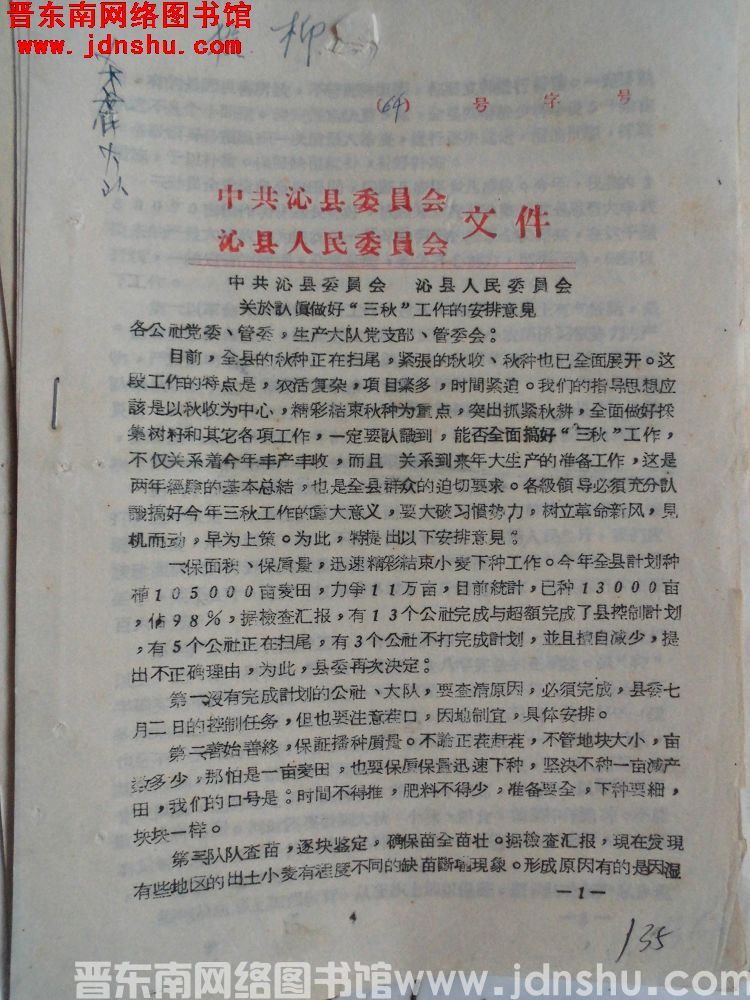 晋东南网络图书馆
www.jdnshu.com
(64) 号 字 号
中共沁县委員会
沁县人民委員会 文件
中共沁县委員会 沁县人民委員会
关於認眞做好“三秋”工作的安排意見
各公社党委、管委，生产大队党支部、管委会：
目前，全县的秋种正在扫尾，紧張的秋收、秋种也已全面展开。这
段工作的特点是，农活复杂，項目繁多，时間紧迫。我們的指导思想应
該是以秋收为中心，精彩結束秋种为重点，突出抓紧秋耕，全面做好採
集树籽和其它各項工作，一定要認識到，能否全面搞好“三秋”工作，
不仅关系着今年丰产丰收，而且 关系到来年大生产的准备工作，这是
两年經驗的基本总結，也是全县群众的迫切要求。各級領导必須充分認
識搞好今年三秋工作的重大意义，要大破习惯势力，树立革命新风，見
机而动，早为上策。为此，特提出以下安排意見：
一保面积、保质量，迅速精彩結束小麦下种工作。今年全县計划种
植105000亩麦田，力爭11万亩，目前統計，已种13000亩
，佔98％，据检查汇报，有13个公社完成与超額完成了县控制計划
，有5个公社正在扫尾，有3个公社不打完成計划，並且擅自减少，提
出不正确理由，为此，县委再次决定：
第一没有完成計划的公社、大队，要查清原因，必須完成，县委七
月二日的控制任务，但也要注意茬口，因地制宜，具体安排。
第二善始善終，保証播种質量。不論正茬䢪茬，不管地块大小，亩
数多少，那怕是一亩麦田，也要保质保量迅速下种，坚决不种一亩减产
田，我們的口号是：时間不得推，肥料不得少，准备要全，下种要細，
块块一样。
第三队队查苗，逐块鉴定，确保苗全苗壮。据检查汇报，現在发現
有些地区的出土小麦有程度不同的缺苗断壠現象。形成原因有的是因湿
—1—
135
晋东南网络图书馆www.jdnshu.com